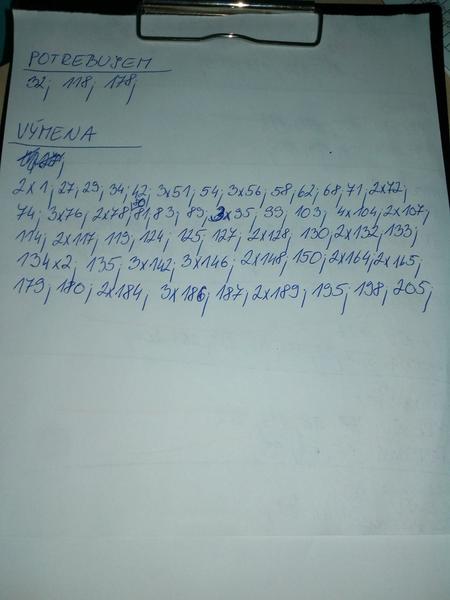 POTREBUJEM
32; 118; 178;
VÝMENA
2x1; 27; 29; 34; 42; 3x51; 54; 3x56; 58; 62; 68; 71; 2x72;
74; 3x76; 2x78; 80; 81; 83; 89; 3x95; 99; 103; 4x104; 2x107;
114; 2x117; 119; 124; 125; 127; 2x128; 130; 2x132; 133;
134x2; 135; 3x142; 3x146; 2x148; 150; 2x164; 2x165;
179; 180; 2x184; 3x186; 187; 2x189; 195; 198; 205;